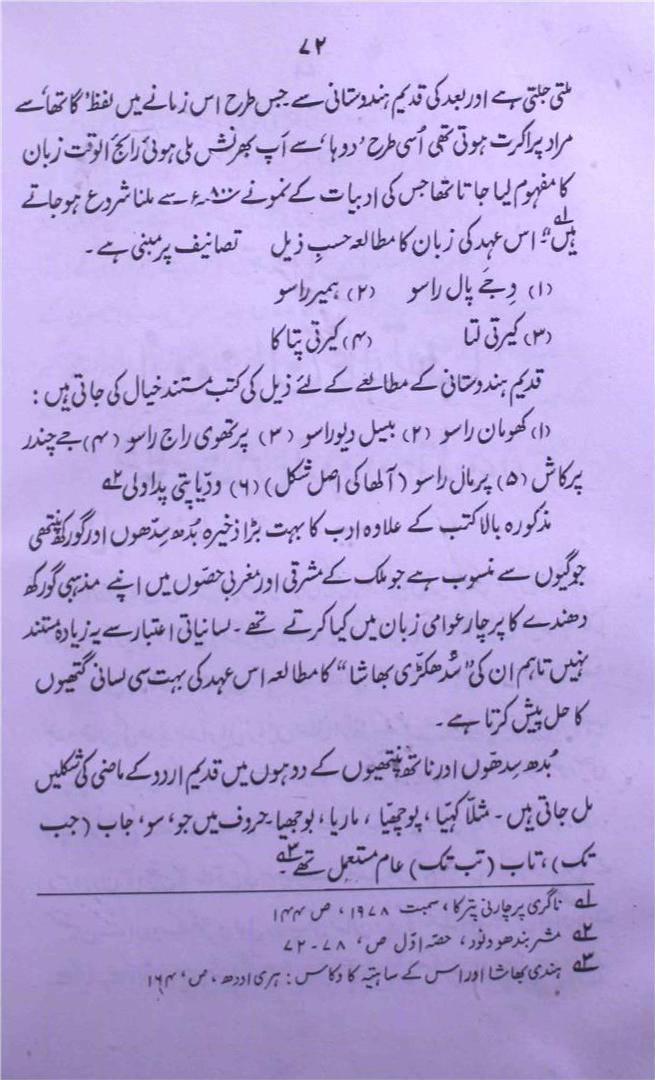 ۷۲
ملتی جلتی ہے اور بعد کی قدیم ہندوستانی سے جس طرح اس زمانے میں لفظ ’گاتھا‘ سے
مراد پراکرت ہوتی تھی اُسی طرح ’دوہا‘ سے آپ بھرنش ملی ہوئی رائج الوقت زبان
کا مفہوم لیا جاتا تھا جس کی ادبیات کے نمونے ۸۰۰ء سے ملنا شروع ہو جاتے
ہیں“۱ اس عہد کی زبان کا مطالعہ حسبِ ذیل تصانیف پر مبنی ہے۔
(۱) وِجَے پال راسو (۲) ہمیر راسو
(۳) کیرتی لتا (۴) کیرتی پتاکا
قدیم ہندوستانی کے مطالعے کے لئے ذیل کی کتب مستند خیال کی جاتی ہیں:
(۱) کھومان راسو (۲) بیسل دیو راسو (۳) پرتھوی راج راسو (۴) جے چندر
پرکاش (۵) پرمال راسو (آلھا کی اصل شکل) (۶) ودّیاپتی پداولی ۲
مذکورہ بالا کتب کے علاوہ ادب کا بہت بڑا ذخیرہ بُدھ سِدھوں اور گورکھ پنتھی
جوگیوں سے منسوب ہے جو ملک کے مشرقی اور مغربی حصّوں میں اپنے مذہبی گورکھ
دھندے کا پرچار عوامی زبان میں کیا کرتے تھے۔ لسانیاتی اعتبار سے یہ زیادہ مستند
نہیں تاہم ان کی ”سُدھکڑی بھاشا“ کا مطالعہ اس عہد کی بہت سی لسانی گتھیوں
کا حل پیش کرتا ہے۔
بُدھ سِدھوں اور ناتھ پنتھیوں کے دوہوں میں قدیم اردو کے ماضی کی شکلیں
مل جاتی ہیں۔ مثلاً کہیّا، پوچھیّا، ماریا، بوجھیا۔ حروف میں جو، سو، جاب (جب
تک)، تاب (تب تک) عام مستعمل تھے۔۳
۱ ناگری پرچارنی پترکا، سمبت ۱۹۷۸، ص ۱۴۴
۲ مشر بندھو ونود، حصّہ اوّل ص، ۷۸-۷۲
۳ ہندی بھاشا اور اس کے ساہتیہ کا وکاس: ہری اودھ، ص، ۱۶۴